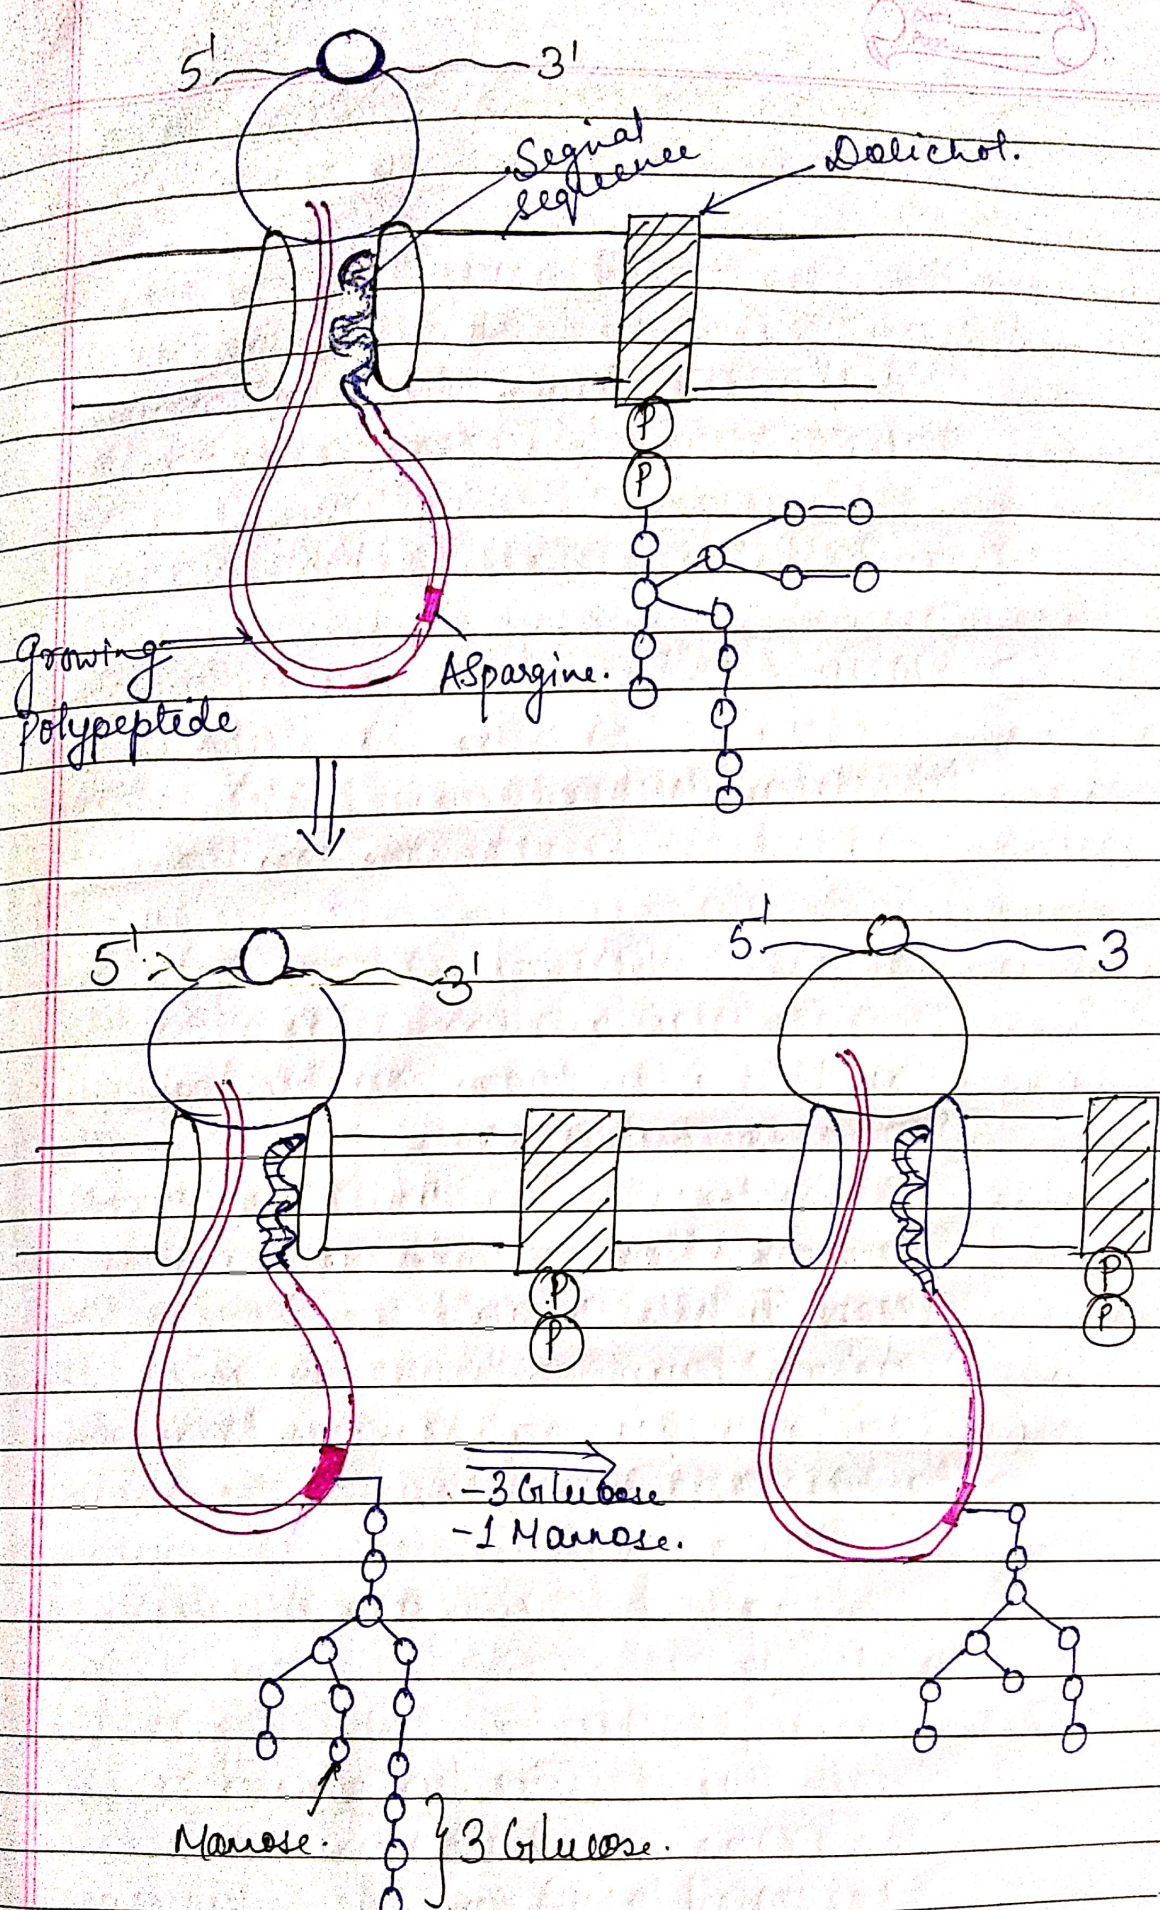 5' 3'
Segnal
sequence
Dolichol.
P
P
Growing
polypeptide
Aspargine.
5' 3'
5' 3
P
P
P
P
-3 Glucose
-1 Mannose.
Manose.
3 Glucose.